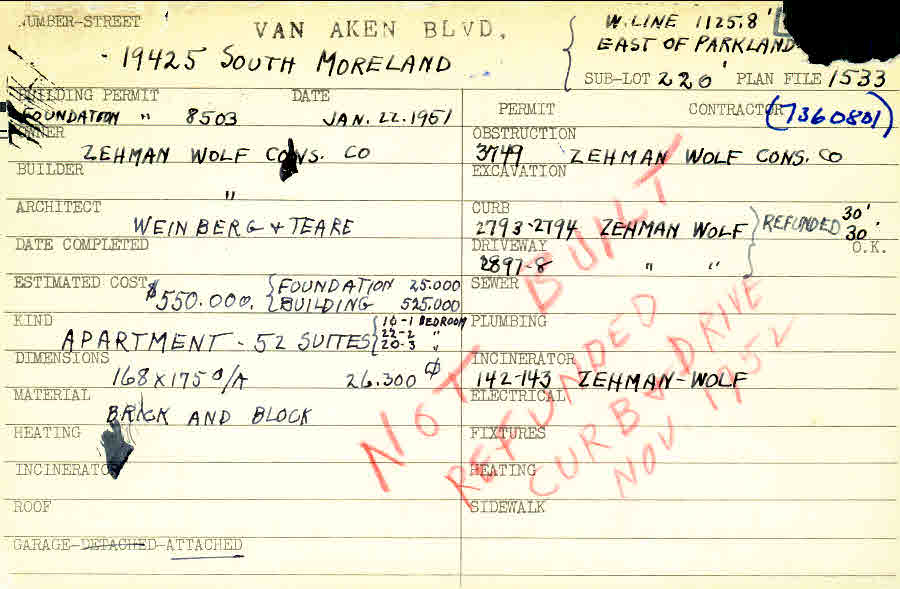 NUMBER-STREET
VAN AKEN BLVD.
- 19425 SOUTH MORELAND
W. LINE 1125.8'
EAST OF PARKLAND
SUB-LOT 220' PLAN FILE 1533
BUILDING PERMIT DATE
FOUNDATION " 8503 JAN. 22. 1951
OWNER
ZEHMAN WOLF CONS. CO
BUILDER
"
ARCHITECT
WEINBERG & TEARE
DATE COMPLETED
ESTIMATED COST
$550.000. FOUNDATION 25.000
BUILDING 525.000
KIND
APARTMENT - 52 SUITES
10-1 BEDROOM
22-2 "
20-3 "
DIMENSIONS
168 X 175 O/A 26.300 ¢
MATERIAL
BRICK AND BLOCK
HEATING
INCINERATOR
ROOF
GARAGE-DETACHED-ATTACHED
PERMIT CONTRACTOR
(7360801)
OBSTRUCTION
3749 ZEHMAN WOLF CONS. CO
EXCAVATION
CURB
2793-2794 ZEHMAN WOLF
REFUNDED 30'
30'
O.K.
DRIVEWAY
2897-8 " "
SEWER
PLUMBING
INCINERATOR
142-143 ZEHMAN-WOLF
ELECTRICAL
FIXTURES
HEATING
SIDEWALK
NOT BUILT
REFUNDED
CURB & DRIVE
NOV. 1952